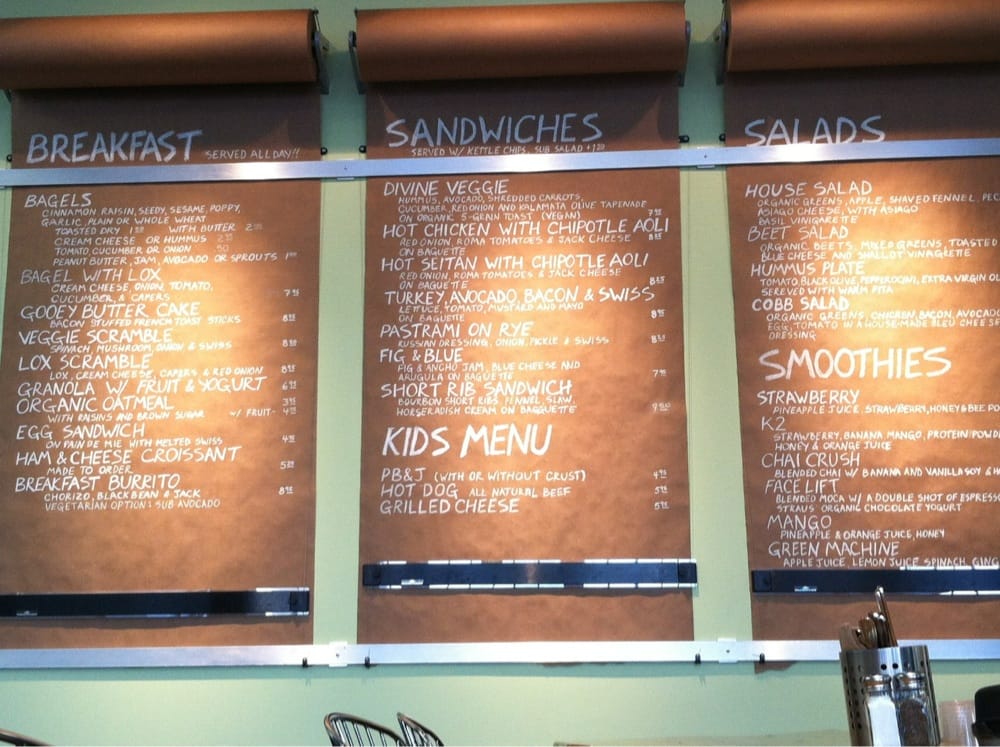 BREAKFAST SERVED ALL DAY!!
BAGELS
CINNAMON, RAISIN, SEEDY, SESAME, POPPY,
GARLIC, PLAIN OR WHOLE WHEAT
TOASTED DRY WITH BUTTER
CREAM CHEESE OR HUMMUS
TOMATO, CUCUMBER OR ONION 50
PEANUT BUTTER, JAM, AVOCADO OR SPROUTS
BAGEL WITH LOX
CREAM CHEESE, ONION, TOMATO,
CUCUMBER, & CAPERS
GOOEY BUTTER CAKE
BACON STUFFED FRENCH TOAST STICKS
VEGGIE SCRAMBLE
SPINACH, MUSHROOM, ONION & SWISS
LOX SCRAMBLE
LOX, CREAM CHEESE, CAPERS & RED ONION
GRANOLA W/ FRUIT & YOGURT
ORGANIC OATMEAL
WITH RAISINS AND BROWN SUGAR W/ FRUIT-
EGG SANDWICH
ON PAIN DE MIE WITH MELTED SWISS
HAM & CHEESE CROISSANT
MADE TO ORDER
BREAKFAST BURRITO
CHORIZO, BLACK BEAN & JACK
VEGETARIAN OPTION: SUB AVOCADO
SANDWICHES
SERVED W/ KETTLE CHIPS, SUB SALAD
DIVINE VEGGIE
HUMMUS, AVOCADO, SHREDDED CARROTS,
CUCUMBER, RED ONION AND KALAMATA OLIVE TAPENADE
ON ORGANIC 5-GRAIN TOAST (VEGAN)
HOT CHICKEN WITH CHIPOTLE AOLI
RED ONION, ROMA TOMATOES & JACK CHEESE
ON BAGUETTE
HOT SEITAN WITH CHIPOTLE AOLI
RED ONION, ROMA TOMATOES & JACK CHEESE
ON BAGUETTE
TURKEY, AVOCADO, BACON & SWISS
LETTUCE, TOMATO, MUSTARD AND MAYO
ON BAGUETTE
PASTRAMI ON RYE
RUSSIAN DRESSING, ONION, PICKLE & SWISS
FIG & BLUE
FIG & ANCHO JAM, BLUE CHEESE AND
ARUGULA ON BAGUETTE
SHORT RIB SANDWICH
BOURBON SHORT RIBS, FENNEL, SLAW,
HORSERADISH CREAM ON BAGGUETTE
KIDS MENU
PB&J (WITH OR WITHOUT CRUST)
HOT DOG ALL NATURAL BEEF
GRILLED CHEESE
SALADS
HOUSE SALAD
ORGANIC GREENS, APPLE, SHAVED FENNEL,
ASIAGO CHEESE, WITH ASIAGO
BASIL VINIGARETTE
BEET SALAD
ORGANIC BEETS, MIXED GREENS, TOASTED
BLUE CHEESE AND SHALLOT VINAGRETTE
HUMMUS PLATE
TOMATO, BLACK OLIVE, PEPPEROCINI, EXTRA VIRGIN
SERVED WITH WARM PITA
COBB SALAD
ORGANIC GREENS, CHICKEN, BACON, AVOCADO
EGG, TOMATO IN A HOUSE-MADE BLEU CHEESE
DRESSING
SMOOTHIES
STRAWBERRY
PINEAPPLE JUICE, STRAWBERRY, HONEY & BEE
K2
STRAWBERRY, BANANA MANGO, PROTEIN
HONEY & ORANGE JUICE
CHAI CRUSH
BLENDED CHAI W/ BANANA AND VANILLA SOY &
FACE LIFT
BLENDED MOCA W/ A DOUBLE SHOT OF ESPRESSO
STRAUS ORGANIC CHOCOLATE YOGURT
MANGO
PINEAPPLE & ORANGE JUICE, HONEY
GREEN MACHINE
APPLE JUICE, LEMON JUICE, SPINACH,